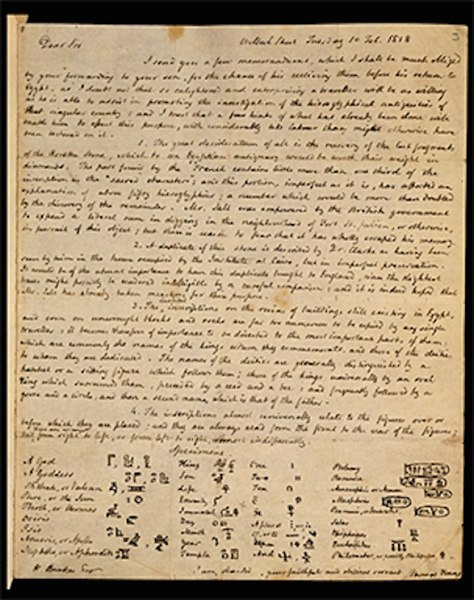 3
Dear Sir Welbeck Street Tuesday 10 Feb. 1818
I send you a few memorandums, which I shall be much obliged
by your forwarding to your son, for the chance of his receiving them before his return to
Egypt, as I doubt not that so enlightened and enterprising a traveller will be as willing
as he is able to assist in promoting the investigation of the hieroglyphical antiquities of
that singular country; and I trust that a few hints of what has already been done
enable him to effect this purpose, with considerably less labour than might otherwise have
been required in it.
1. The great desideratum of all is the recovery of the lost fragments
of the Rosetta Stone, which to an Egyptian antiquary would be worth their weight in
diamonds. The part found by the French contains little more than one third of the
inscription in the "sacred characters"; and this portion, imperfect as it is, has afforded an
explanation of above fifty hieroglyphics; a number which would be more than doubled
by the discovery of the remainder. Mr. Salt was empowered by the British government
to expend a liberal sum in digging in the neighbourhood of Fort St. Julien, or otherwise,
in pursuit of this object; but there is reason to fear that it has wholly escaped his memory.
2. A duplicate of this stone is described by Dr. Clarke as having been
seen by him in the house occupied by the Institute at Cairo, but in imperfect preservation.
It would be of the utmost importance to have this duplicate brought to England, when the slightest
traces might possibly be rendered intelligible by a careful comparison; and it is indeed hoped that
Mr. Salt has already taken measures for this purpose.
3. The inscriptions on the ruins of buildings still existing in Egypt,
and even on unwrought blocks and rocks are far too numerous to be copied by any single
traveller; it becomes therefore of importance to be directed to the most important parts of them,
which are commonly the names of the kings whom they commemorate, and those of the deities
to whom they are dedicated. The names of the deities are generally distinguished by a
hatchet or a sitting figure which follows them; those of the kings universally by an oval
ring which surrounds them, preceded by a reed and a bee, and frequently followed by a
goose and a circle, and then a second name, which is that of the father.
4. The inscriptions almost universally relate to the figures over or
before which they are placed; and they are always read from the front to the rear of the figures;
but from right to left, or from left to right, indifferently.
Specimens
A God King One Ptolemy
A Goddess Son Two Berenice
Phthah, or Vulcan Life
Phre, or the Sun Eternity
Thoth, or Hermes Immortal
Osiris Day
Isis Month
Year
Nephthe, or Aphrodite Temple And
W. Bankes Esqr I am, dear Sir, your faithful and obedient servant, Thomas Young